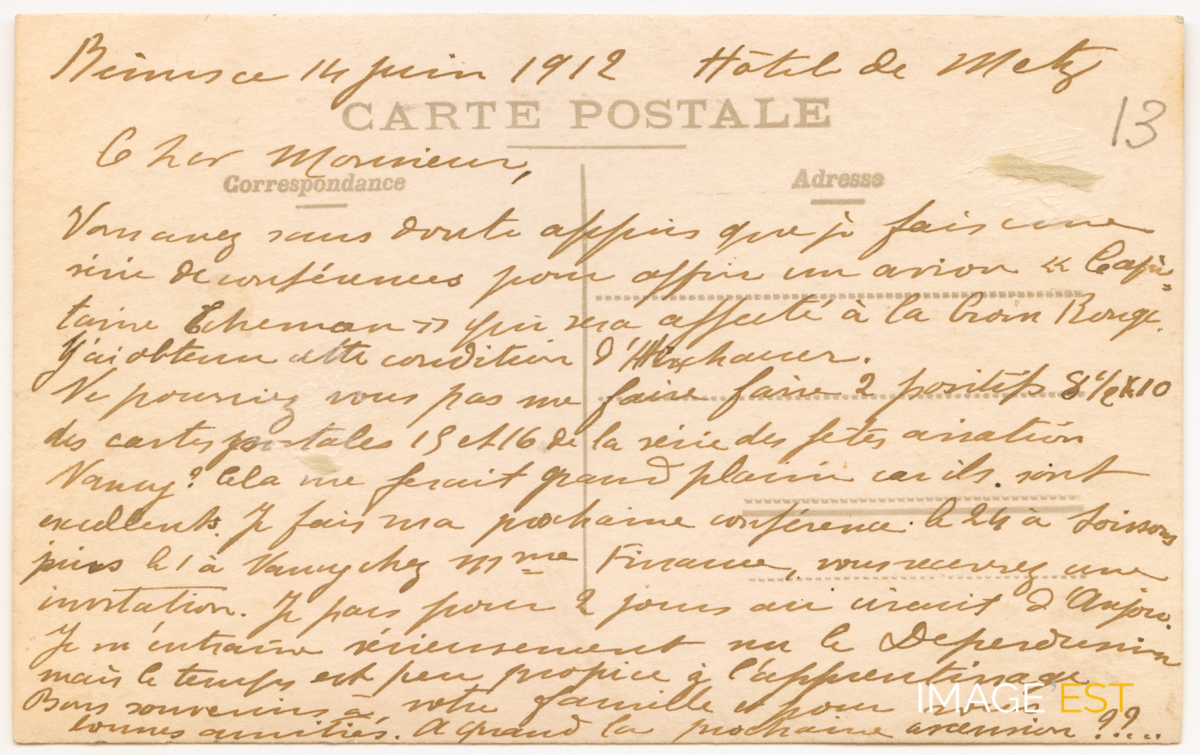 Reims ce 14 juin 1912 Hôtel de Metz
CARTE POSTALE
13
Cher Monsieur,
Correspondance
Adresse
Vous avez sans doute appris que je fais une
série de conférences pour offrir un avion « Capi=
taine Echeman » qui sera affecté à la Croix Rouge.
J'ai obtenu cette condition d'Hirschauer.
Ne pourriez vous pas me faire faire 2 positifs 8 1/2 x 10
des cartes postales 15 et 16 de la série des fêtes aviation
Nancy? Cela me ferait grand plaisir car ils sont
excellents. Je fais ma prochaine conférence le 24 à Soissons
puis le 1 à Nancy chez Mme Finance, vous recevrez une
invitation. Je pars pour 2 jours au circuit d'Anjou.
Je m'entraîne sérieusement sur le Deperdussin
mais le temps est peu propice à l'apprentissage
Bons souvenirs à votre famille et pour
bonnes amitiés. A quand la prochaine ascension ??...
IMAGE EST